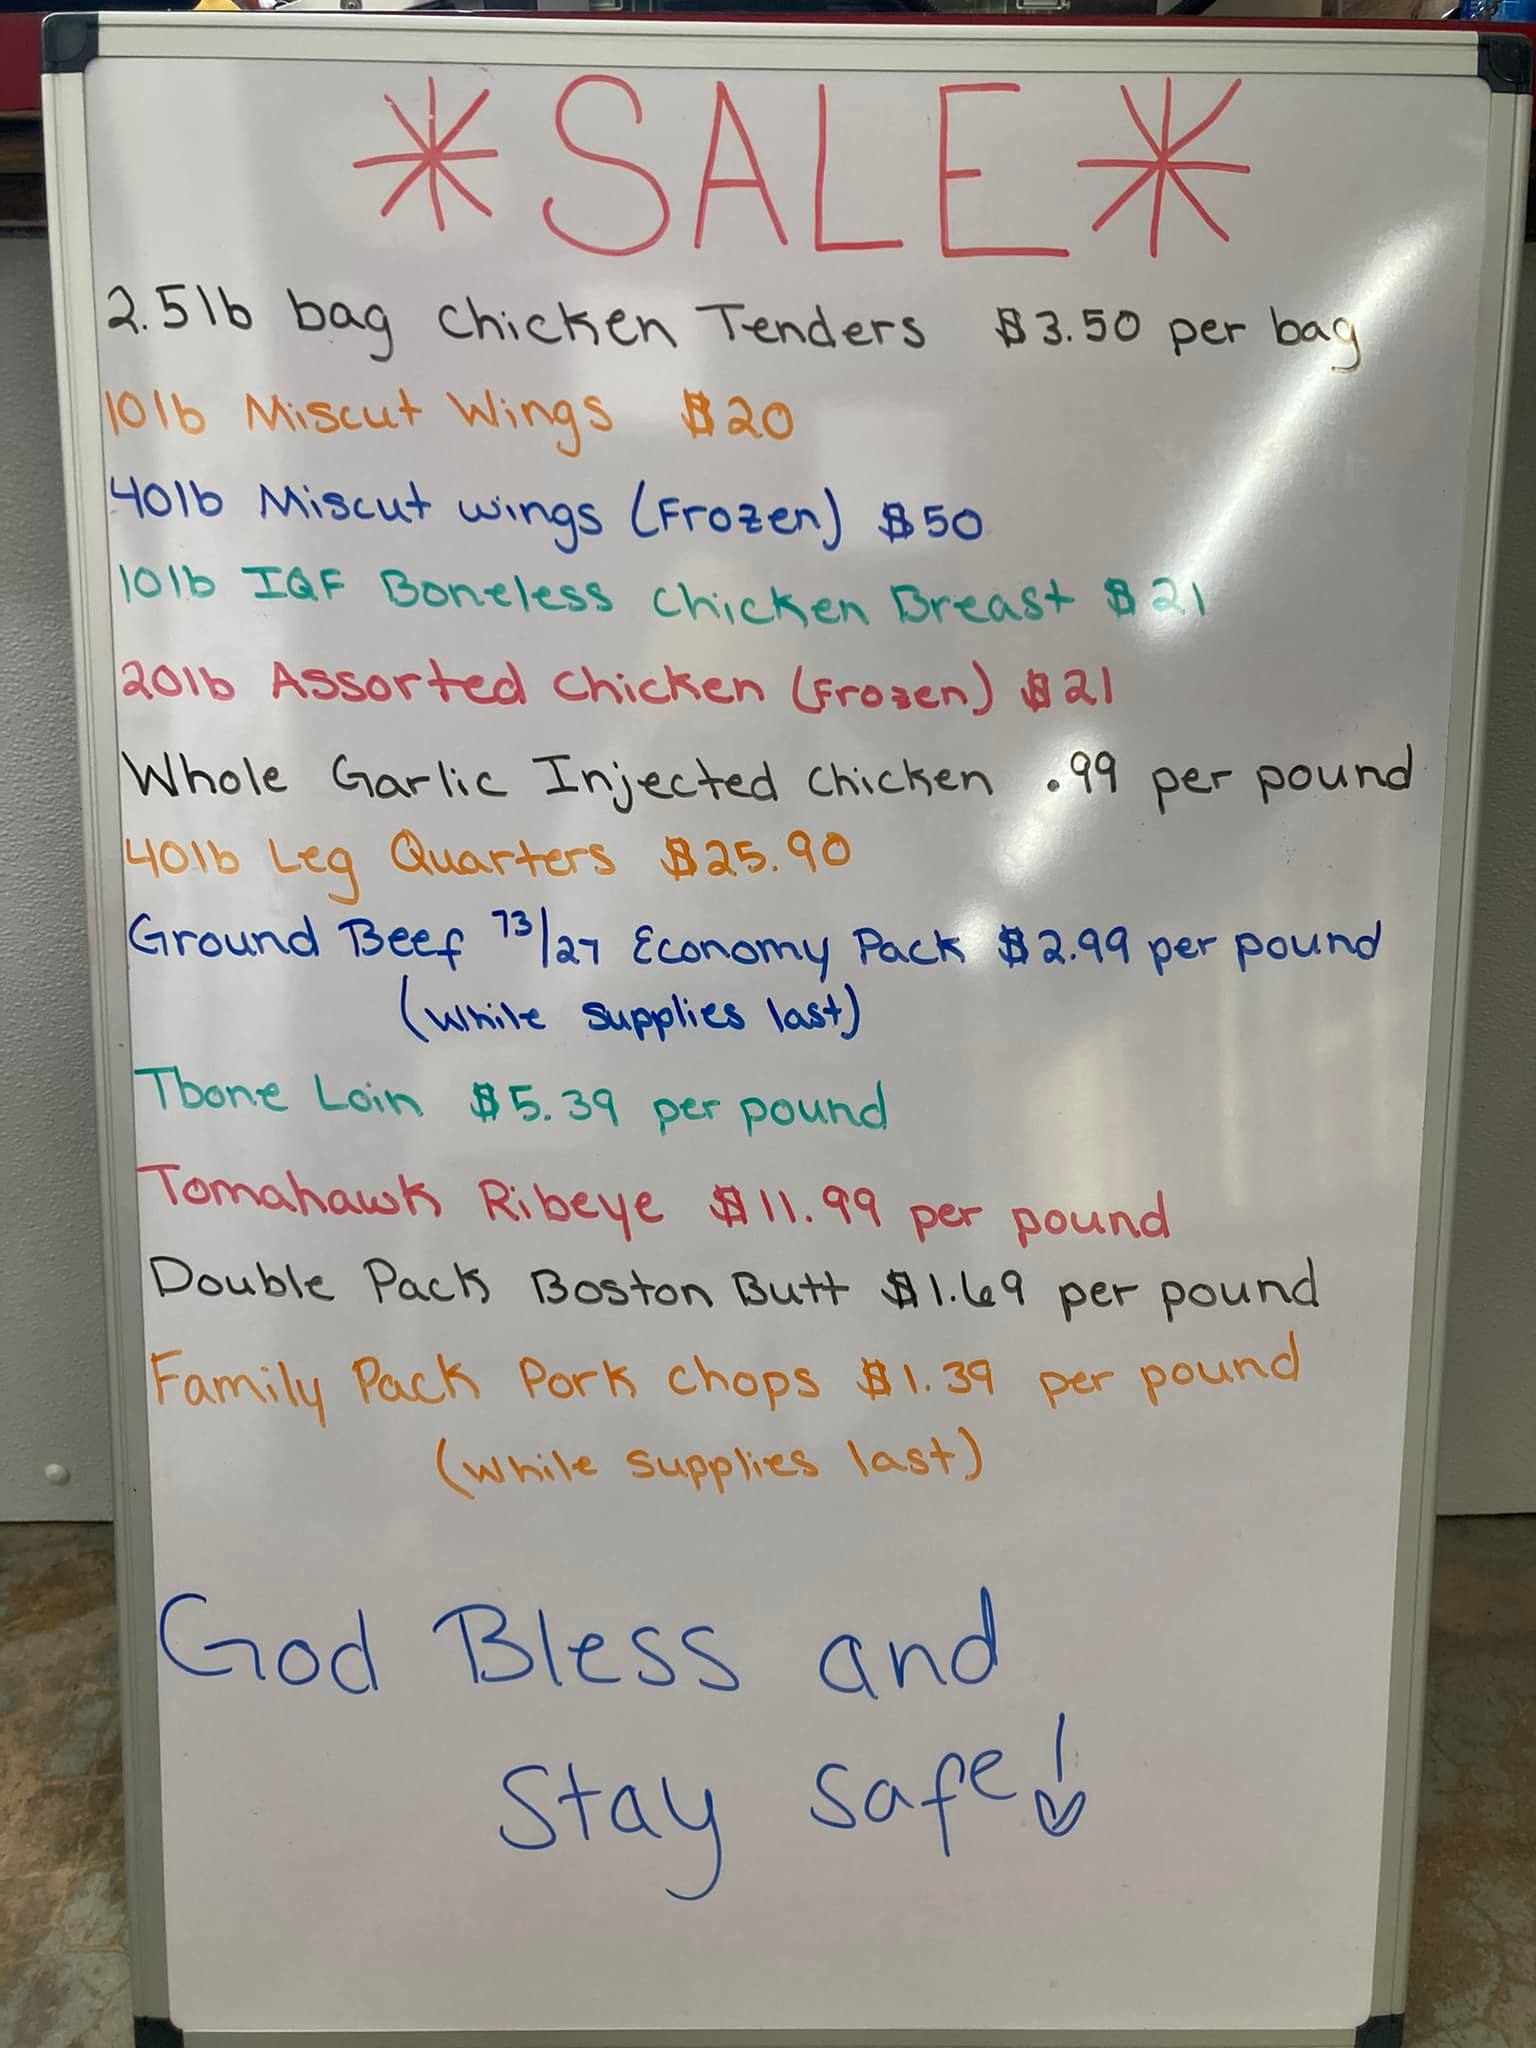 *SALE*
2.5lb bag Chicken Tenders $3.50 per bag
10lb Miscut Wings $20
40lb Miscut wings (Frozen) $50
10lb IQF Boneless Chicken Breast $21
20lb Assorted Chicken (Frozen) $21
Whole Garlic Injected Chicken .99 per pound
40lb Leg Quarters $25.90
Ground Beef 73/27 Economy Pack $2.99 per pound
(while supplies last)
Tbone Loin $5.39 per pound
Tomahawk Ribeye $11.99 per pound
Double Pack Boston Butt $1.69 per pound
Family Pack Pork Chops $1.39 per pound
(while supplies last)
God Bless and
Stay safe!